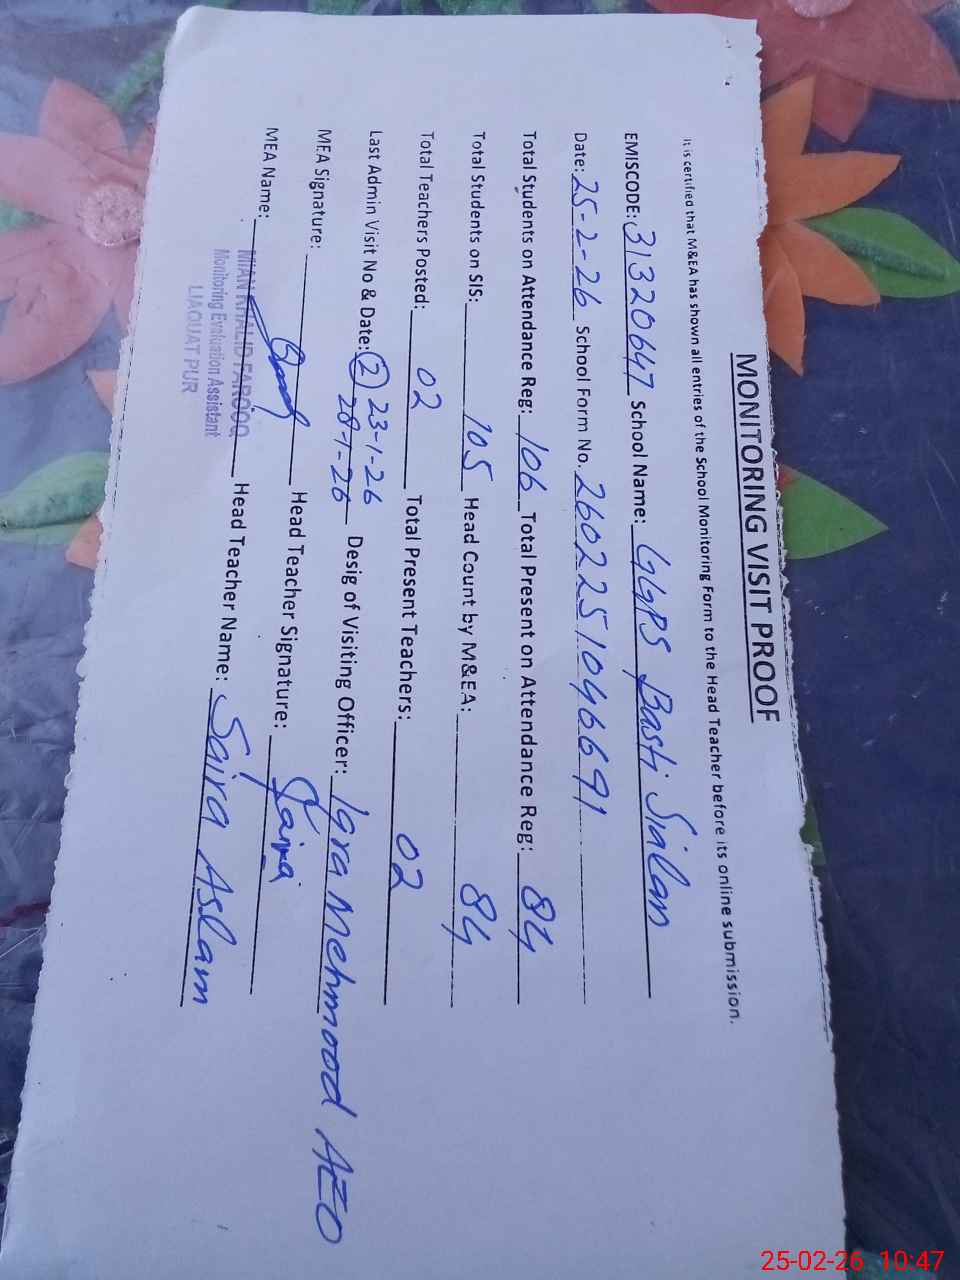 MONITORING VISIT PROOF
It is certified that M&EA has shown all entries of the School Monitoring Form to the Head Teacher before its online submission.
EMISCODE: 31320647 School Name: GGPS Basti Sialan
Date: 25-2-26 School Form No. 2602251046691
Total Students on Attendance Reg: 106 Total Present on Attendance Reg: 84
Total Students on SIS: 105 Head Count by M&EA: 84
Total Teachers Posted: 02 Total Present Teachers: 02
Last Admin Visit No & Date: (2) 23-1-26 28-1-26 Desig of Visiting Officer: Iqra Mehmood AEO
MEA Signature: Head Teacher Signature: Saira
MEA Name: MIAN KHALID FAROOQ Head Teacher Name: Saira Aslam
Monitoring Evaluation Assistant
LIAQUAT PUR
25-02-26 10:47